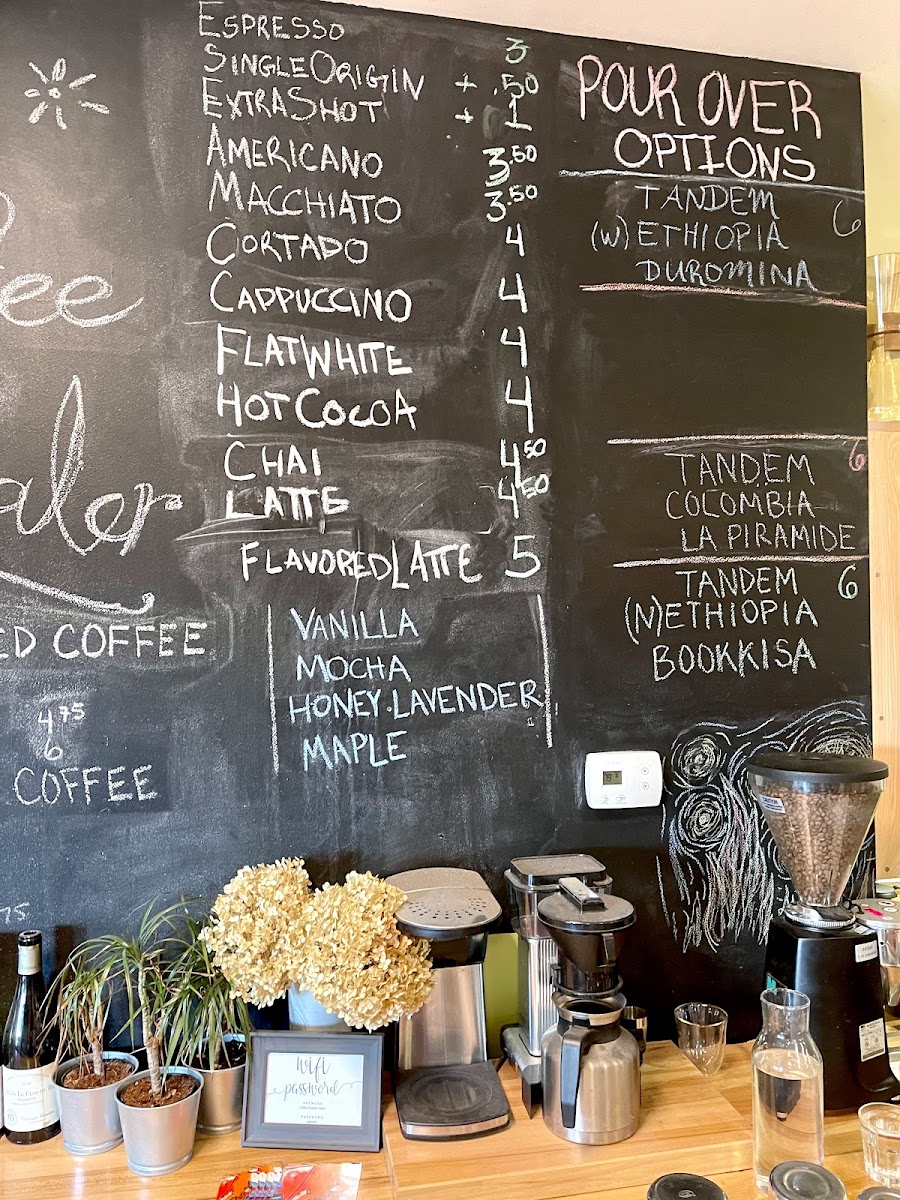 ESPRESSO 3
SINGLE ORIGIN + .50
EXTRA SHOT + 1
AMERICANO 3.50
MACCHIATO 3.50
CORTADO 4
CAPPUCCINO 4
FLAT WHITE 4
HOT COCOA 4
CHAI 4.50
LATTE 4.50
FLAVORED LATTE 5
VANILLA
MOCHA
HONEY·LAVENDER
MAPLE
POUR OVER
OPTIONS
TANDEM 6
(W) ETHIOPIA
DUROMINA
TANDEM 6
COCOMBIA
LA PIRAMIDE
TANDEM 6
(N) ETHIOPIA
BOOKKISA
ee
aler
ED COFFEE
4.75
6
COFFEE
75
wifi
password